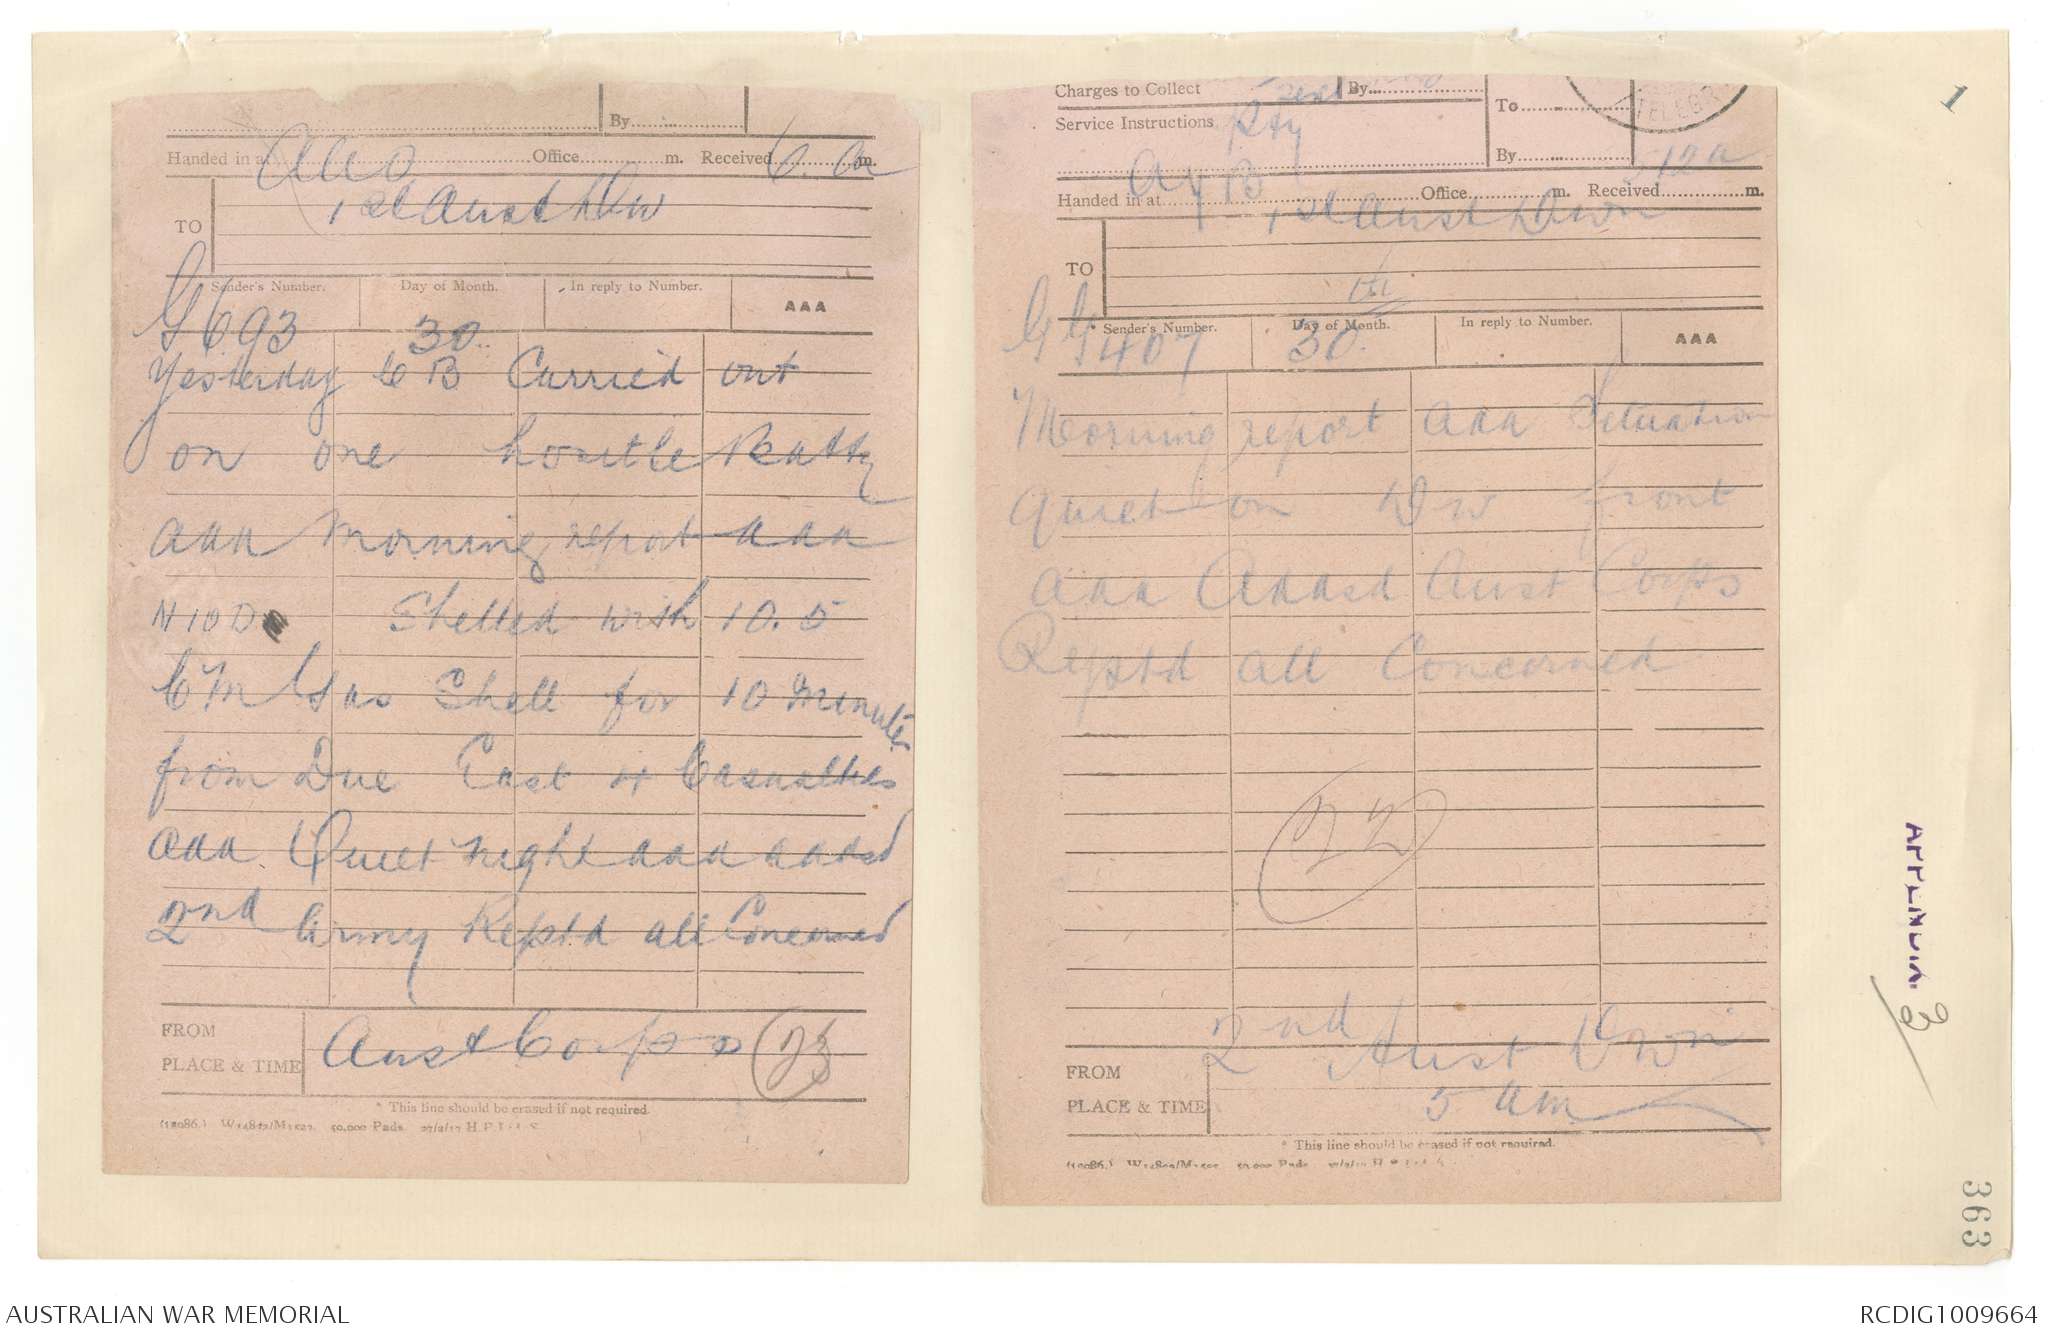 By
Handed in at AAO Office m. Received 6. am.
TO 1st Aust Div
Sender's Number. Day of Month. In reply to Number. AAA
G693 30
Yesterday C B Carried out
on one hostile Batty
aaa Morning report aaa
N10D Shelled with 10.5
CM Gas Shell for 10 Minutes
from Due East Casualties
aaa Quiet night aaa aadsd
2nd Army Reptd all Concerned
FROM
PLACE & TIME
Aust Corps
23
* This line should be erased if not required.
Charges to Collect
Service Instructions
Pty
By
To
By
TELEGR
Handed in at AYB Office m. Received 512a m.
TO 1st Aust Divn
Sender's Number. Day of Month. In reply to Number. AAA
GG407 30.
Morning report aaa Situation
quiet on Div front
aaa Addsd Aust Corps
Reptd all Concerned
22
FROM
PLACE & TIME
2nd Aust Divn
5 am
* This line should be erased if not required.
1
APPENDIX
3
363
AUSTRALIAN WAR MEMORIAL
RCDIG1009664